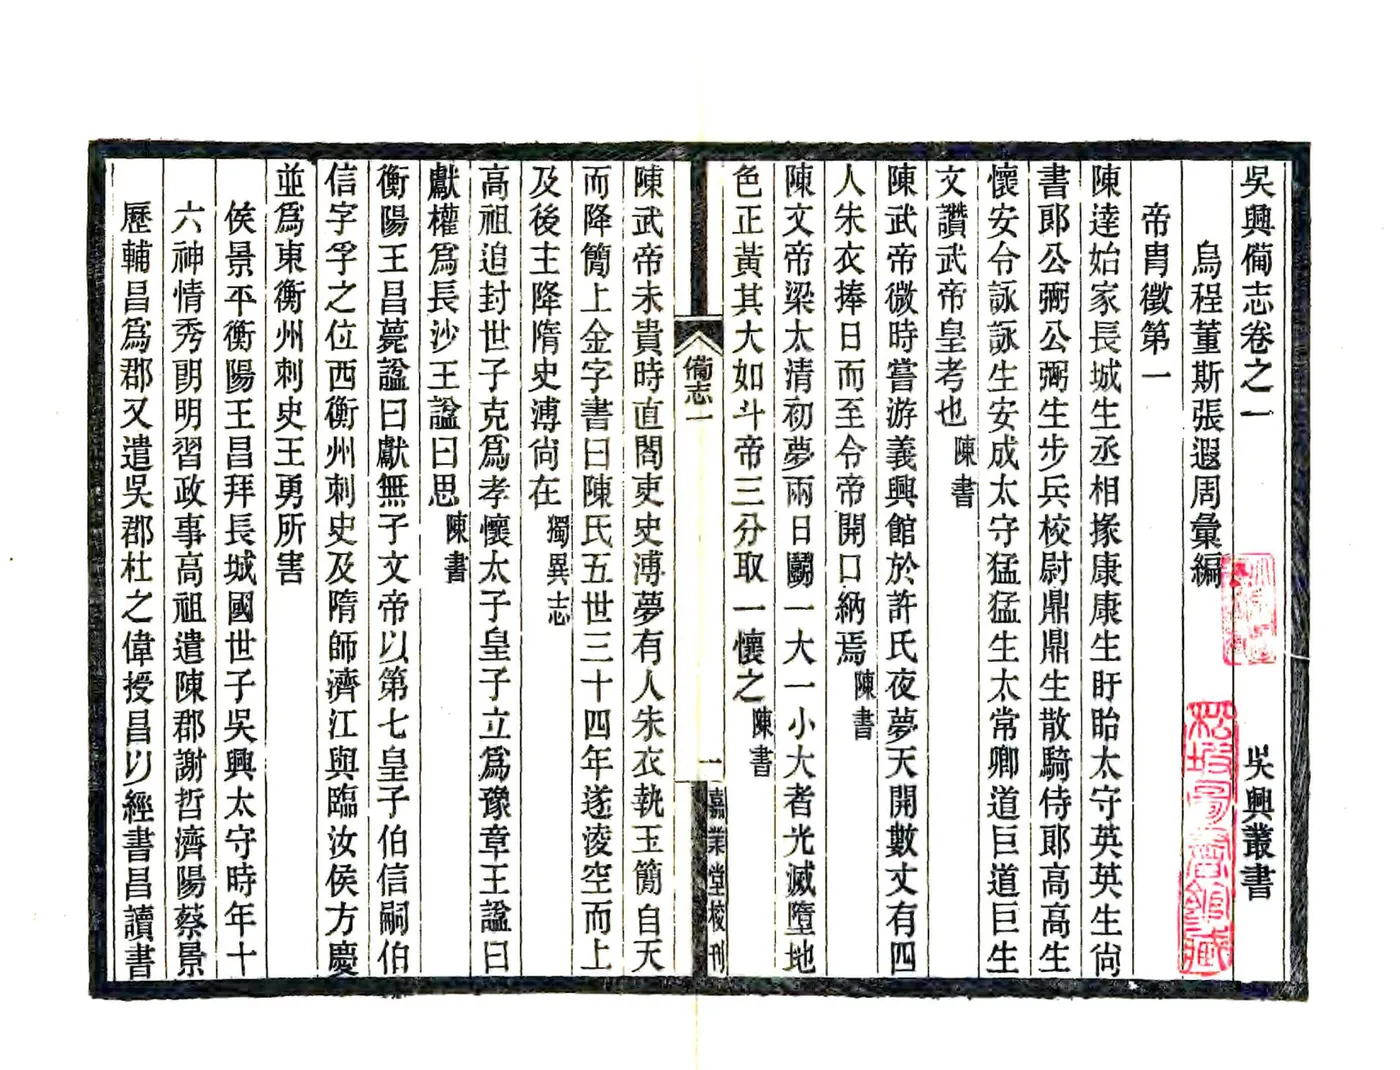 吳興備志卷之一 吳興叢書
烏程董斯張遐周彙編
帝胄徵第一
陳達始家長城生丞相掾康康生盱眙太守英英生尙
書郞公弼公弼生步兵校尉鼎鼎生散騎侍郞高高生
懷安令詠詠生安成太守猛猛生太常卿道巨道巨生
文讚武帝皇考也陳書
陳武帝微時嘗游義興館於許氏夜夢天開數丈有四
人朱衣捧日而至令帝開口納焉陳書
陳文帝梁太清初夢兩日鬭一大一小大者光滅墮地
色正黃其大如斗帝三分取一懷之陳書
備志一
一
嘉業堂校刊
陳武帝未貴時直閤吏史溥夢有人朱衣執玉簡自天
而降簡上金字書曰陳氏五世三十四年遂淩空而上
及後主降隋史溥尙在獨異志
高祖追封世子克爲孝懷太子皇子立爲豫章王諡曰
獻權爲長沙王諡曰思陳書
衡陽王昌薨諡曰獻無子文帝以第七皇子伯信嗣伯
信字孚之位西衡州刺史及隋師濟江與臨汝侯方慶
並爲東衡州刺史王勇所害
侯景平衡陽王昌拜長城國世子吳興太守時年十
六神情秀朗明習政事高祖遣陳郡謝哲濟陽蔡景
歷輔昌爲郡又遣吳郡杜之偉授昌以經書昌讀書
松坡圖書館藏